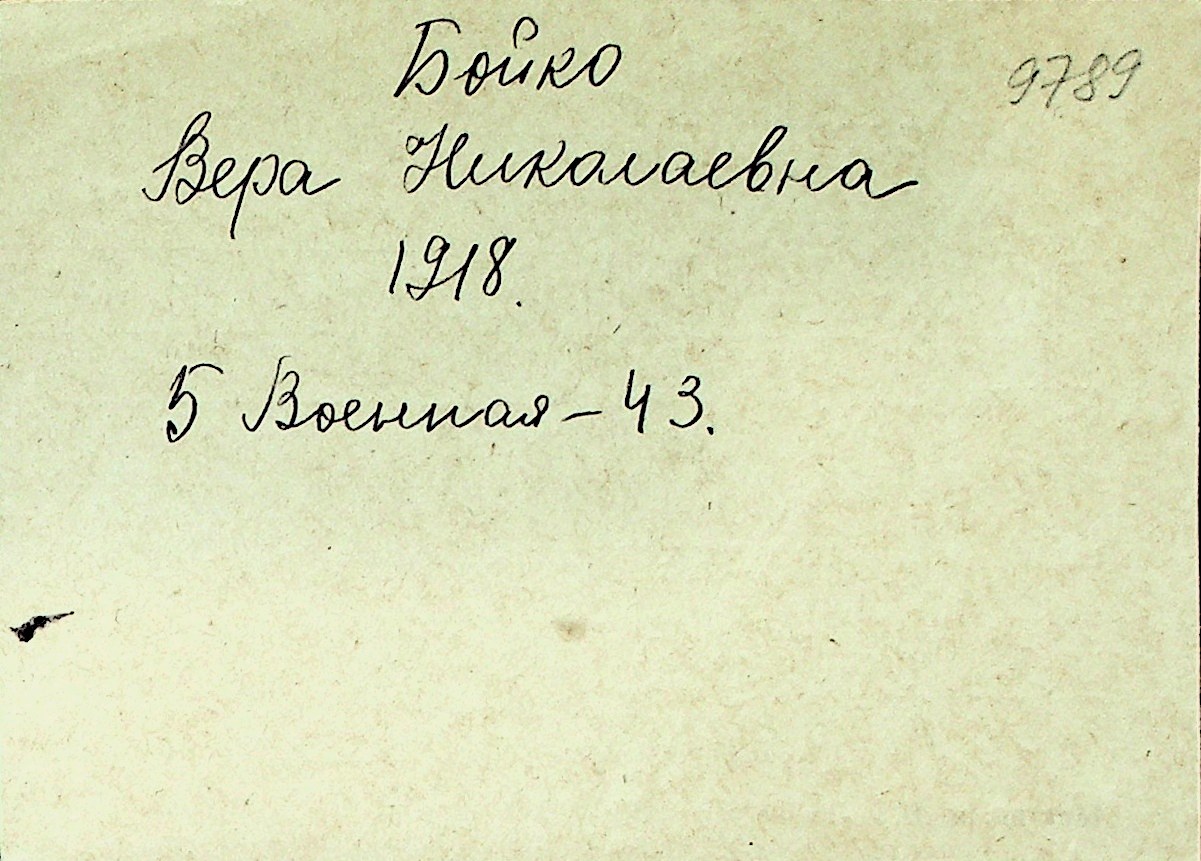 Бойко
9789
Вера Николаевна
1918.
5 Военная – 43.